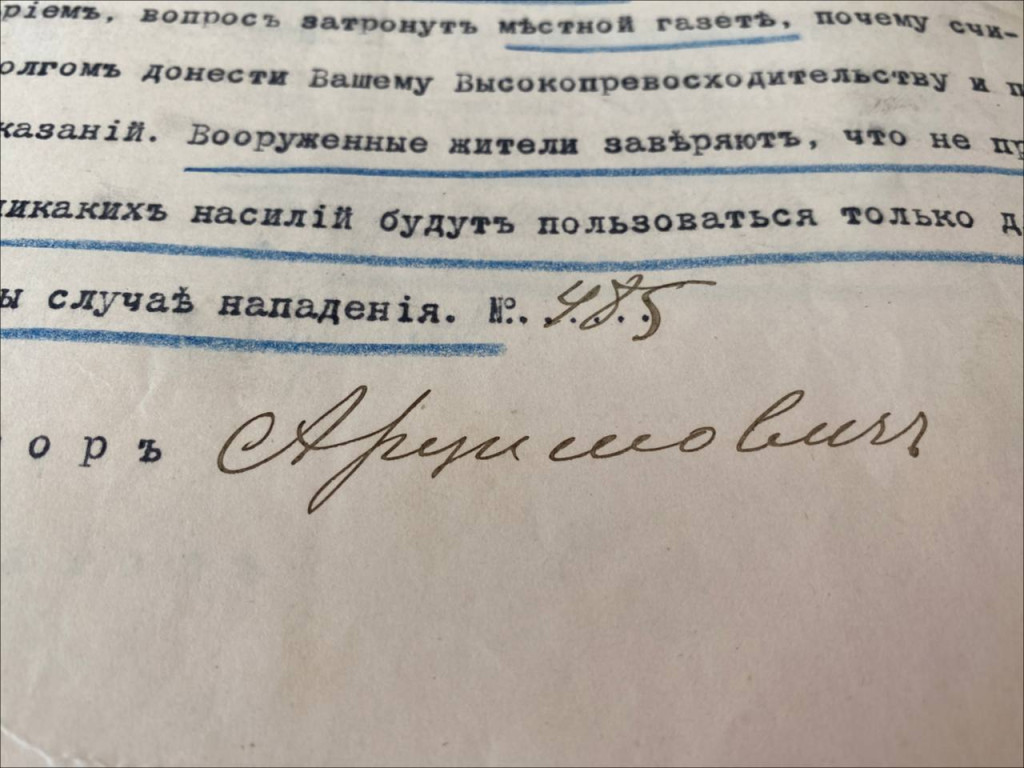 ріемъ, вопросъ затронутъ мѣстной газетѣ, почему счи-
олгомъ донести Вашему Высокопревосходительству и п
казаній. Вооруженные жители завѣряютъ, что не пр
никакихъ насилій будутъ пользоваться только д
ы случаѣ нападенія. №. 485
оръ Арцимовичъ